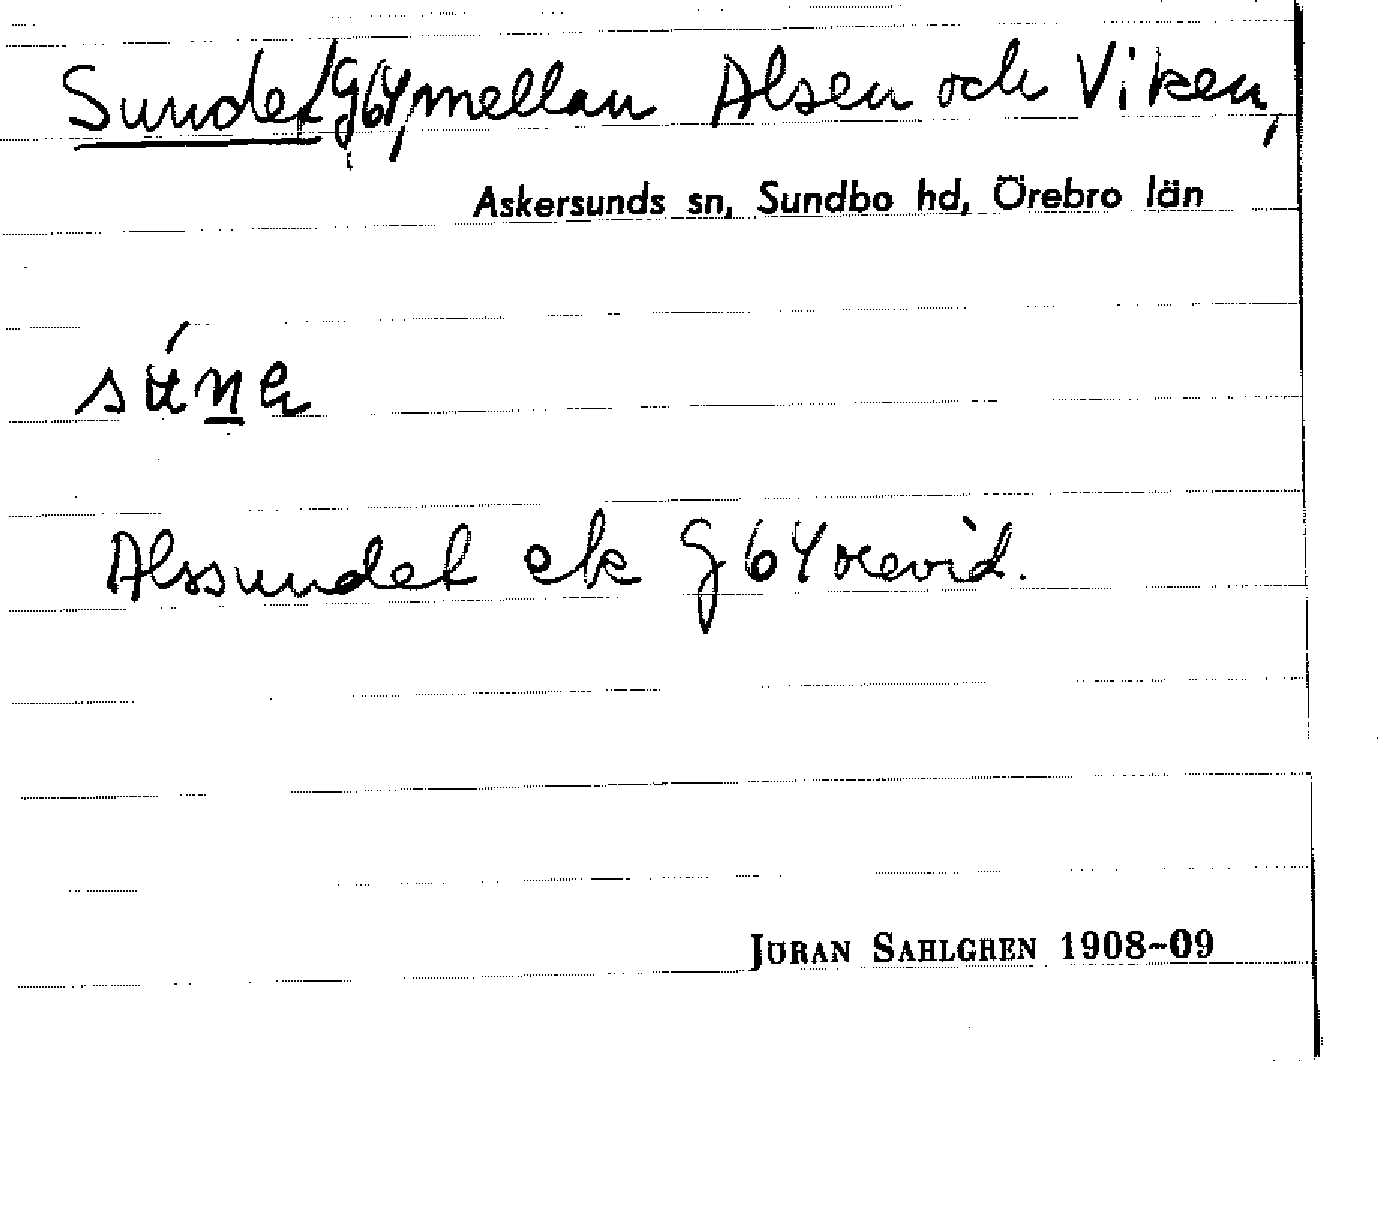 Sundet G64, mellan Alsen och Viken,
Askersunds sn, Sundbo hd, Örebro län
Alssundet ek G64 revid.
JÖRAN SAHLGREN 1908-09